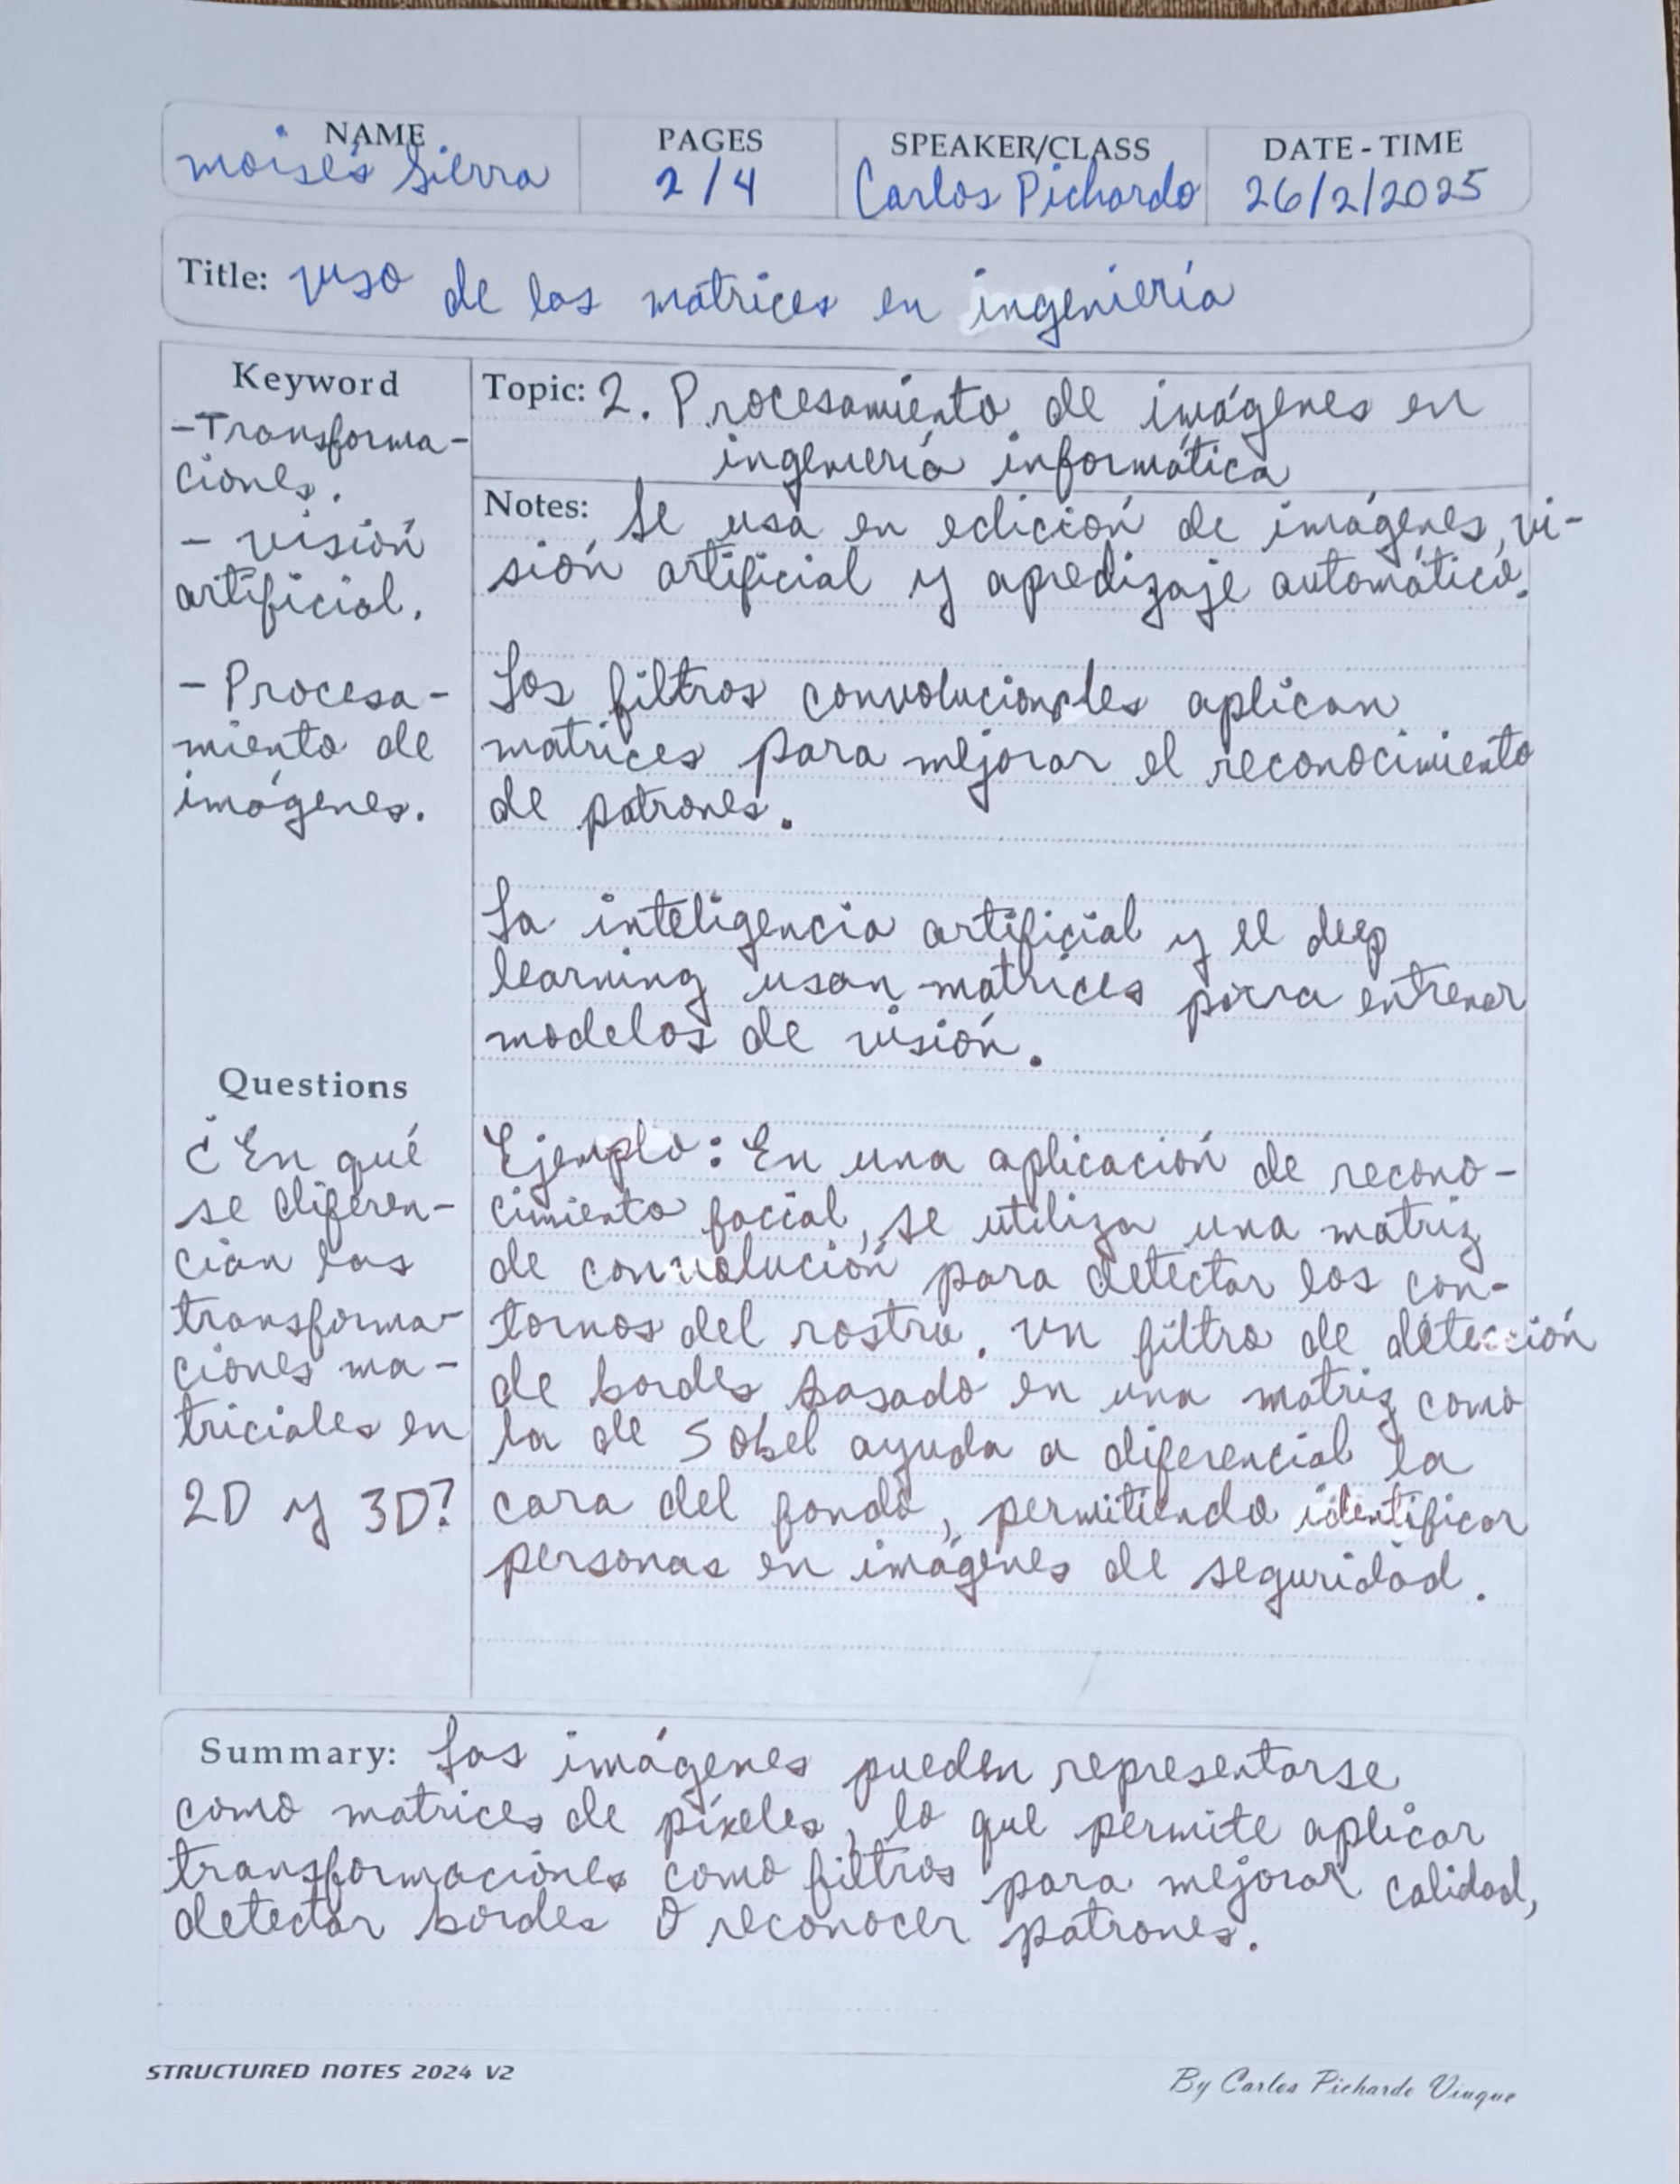 NAME PAGES SPEAKER/CLASS DATE - TIME
moisés Sierra 2/4 Carlos Pichardo 26/2/2025
Title: uso de las matrices en ingeniería
Keyword
-Transforma-
ciones.
- visión
artificial.
- Procesa-
miento de
imágenes.
Questions
¿En qué
se diferen-
cian las
transforma-
ciones ma-
triciales en
2D y 3D?
Topic: 2. Procesamiento de imágenes en
ingeniería informática
Notes: Se usa en edición de imágenes, vi-
sión artificial y apredizaje automático.
Los filtros convolucionales aplican
matrices para mejorar el reconocimiento
de patrones.
La inteligencia artificial y el deep
learning usan matrices para entrenar
modelos de visión.
Ejemplo: En una aplicación de recono-
cimiento facial, se utiliza una matriz
de convolución para detectar los con-
tornos del rostro. Un filtro de detección
de bordes basado en una matriz como
la de Sobel ayuda a diferencial la
cara del fondo, permitiendo identificar
personas en imágenes de seguridad.
Summary: Las imágenes pueden representarse
como matrices de píxeles, lo que permite aplicar
transformaciones como filtros para mejorar calidad,
detectar bordes o reconocer patrones.
STRUCTURED NOTES 2024 V2
By Carlos Pichardo Viuque